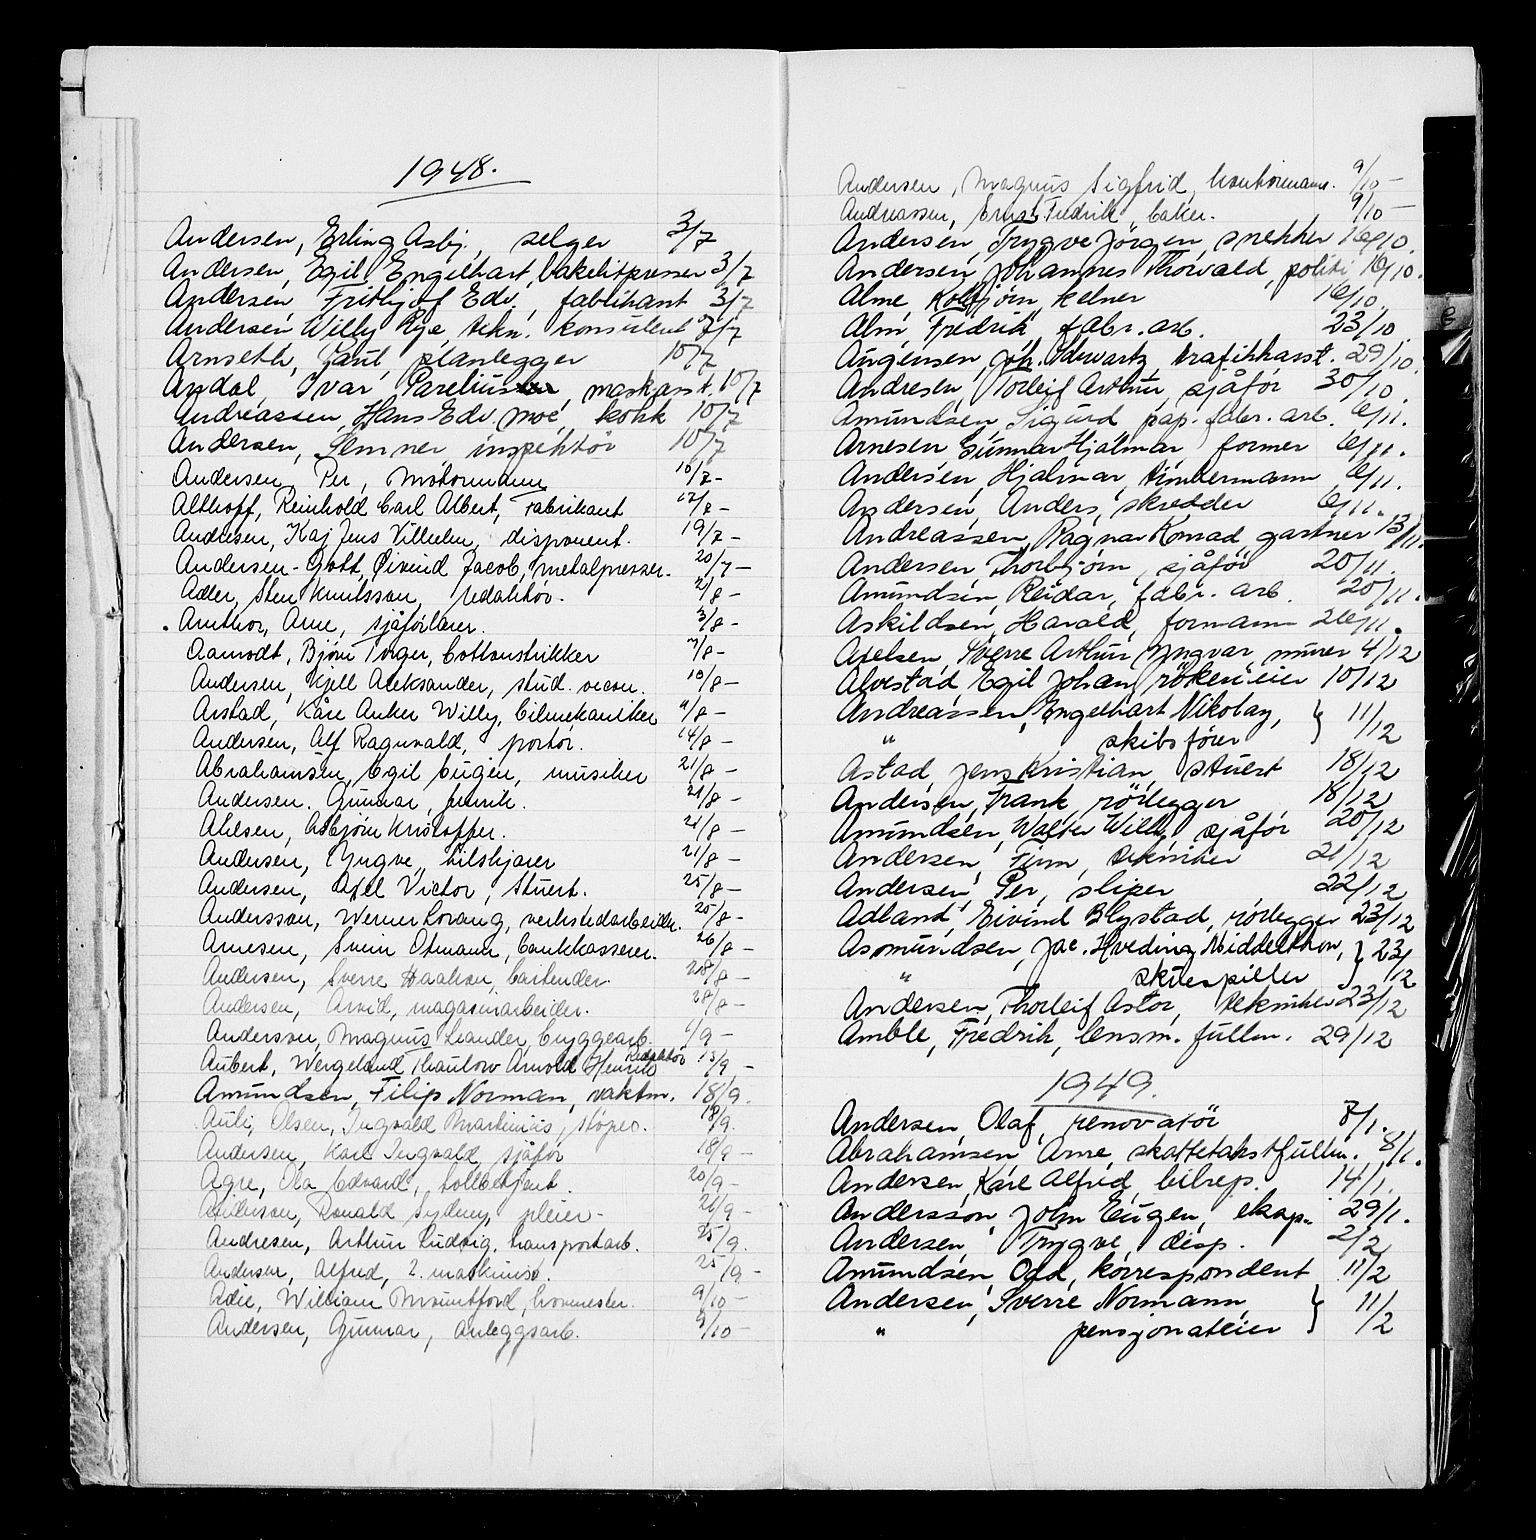 1948.
Andersen, Erling Asbj., selger 3/7
Andersen, Egil Engelhart, bakelitpresser 3/7
Andersen Frithjof Edv., fabrikant 3/7
Andersen Willy Rye, tekn. konsulent 7/7
Arnseth, Gaut, planlegger 10/7
Andal, Ivar Parelius, maskasst. 10/7
Andreassen, Hans Edv. Moe, kokk 10/7
Andersen, Semner inspektör 10/7
Andersen, Per, Motormann 10/7 -
Althoff, Reinhold Carl Albert, Fabrikant 12/7 -
Andresen, Kaj Jens Vilhelm, disponent. 19/7 -
Andersen-Gott, Øivind Jacob, metalpresser. 20/7 -
Adler, Sten Knutsson, redaktör. 2/8 -
Amthor, Arne, sjåförlærer. 3/8 -
Aamodt, Bjørn Torger, Cottonstrikker 7/8 -
Andersen, Kjell Aleksander, stud. oecon. 10/8 -
Arstad, Kåre Anker Willy, bilmekaniker 11/8 -
Andersen, Alf Ragnvald, portör. 14/8 -
Abrahamsen, Egil Eugen, musiker 21/8 -
Andersen. Gunnar, fenrik. 21/8 -
Ahlsen, Asbjørn Kristoffer. 21/8 -
Andersen, Yngve, bilskjører 21/8 -
Andersen, Axel Victor, Stuert. 25/8 -
Andersson, Werner Lorang, verkstedarbeider. 25/8 -
Arnesen, Svein Otmann, bankkasserer. 26/8 -
Andersen, Sverre Haakon, bartender 28/8 -
Andersen, Arvid, magasinarbeider. 28/8 -
Andersson, Magnus Leander, bryggearb. /9 -
Aubert, Wergeland Thaulow Arnold Henrik Redaktör 13/9 -
Amundsen, Filip Norman, vaktm. 18/9.
Auli, Olsen, Ingvald Martinius, støper. 18/9.
Andersen, Karl Ingvald sjåför 18/9 -
Agre, Ola Edvard, tollbetjent. 20/9 -
Andersen, Ronald Sydney, pleier - 21/9 -
Andresen, Arthur Ludvig, transportarb. 25/9.
Andersen, Alfred, 2. maskinist. 25/9 -
Adie, William Mountford, hovmester. 9/10 -
Andersen, Gunnar, anleggsarb. 9/10 -
Andersen, Magnus Sigfrid, kontormann. 9/10 -
Andreassen, Ernst Fredrik, baker. 9/10 -
Andersen, Trygve Jörgen, snekker 16/10.
Andersen, Johannes Thorvald, politi 16/10.
Alme, Kolbjörn, kelner 16/10.
Alm, Fredrik, fabr. arb. 23/10.
Angensen, Joh. Schwartz, trafikkasst. 29/10.
Andresen, Torleif Arthur, sjåför 30/10.
Amundsen, Sigurd pap. fabr. arb. 6/11.
Arnesen Gunnar Hjalmar former 6/11.
Andersen, Hjalmar, tömmermann 6/11.
Andersen, Anders, skredder 6/11.
Andreassen, Ragnar Konrad gartner 13/11.
Andersen Thorbjörn, sjåför 20/11.
Amundsen, Reidar, fabr. arb. 20/11.
Askildsen, Harald, formann 26/11.
Axelsen, Sverre Arthur Yngvar, murer 4/12
Alvestad Egil Johan, rökerieier 10/12
Andreassen, Engelhart Nikolay, } 11/12
" skibsförer
Åstad, Jens Kristian, stuert 18/12
Andersen, Frank, rörlegger 18/12
Amundsen, Walter Willy, sjåför 20/12
Andersen, Finn, tekniker 21/12
Andersen, Per, sliper 22/12
Adland, Eivind Blystad, rörlegger 23/12
Asmundsen, Jac. Hveding Middelthon, } 23/12
" skuespiller
Andersen, Thorleif Astor, tekniker 23/12
Amble, Fredrik, lensm. fullm. 29/12
1949.
Andersen, Olaf, renovatör 7/1.
Abrahamsen Arne, skattetakstfullm. 8/1.
Andersen, Kåre Alfred, bilrep. 14/1.
Andersson, John Eugen, eksp. 29/1.
Andersen, Trygve, disp. 2/2
Amundsen, Odd, korrespondent 11/2
Andersen, Sverre Normann, } 11/2
" pensjonateier